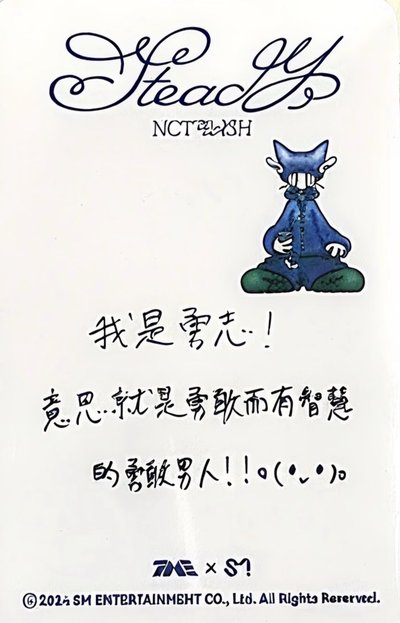 Steady
NCT WISH
我是勇志..!
意思..就是勇敢而有智慧
的勇敢男人!!o(•ᴗ•)o
TME × SM
©2024 SM ENTERTAINMENT CO., Ltd. All Rights Reserved.